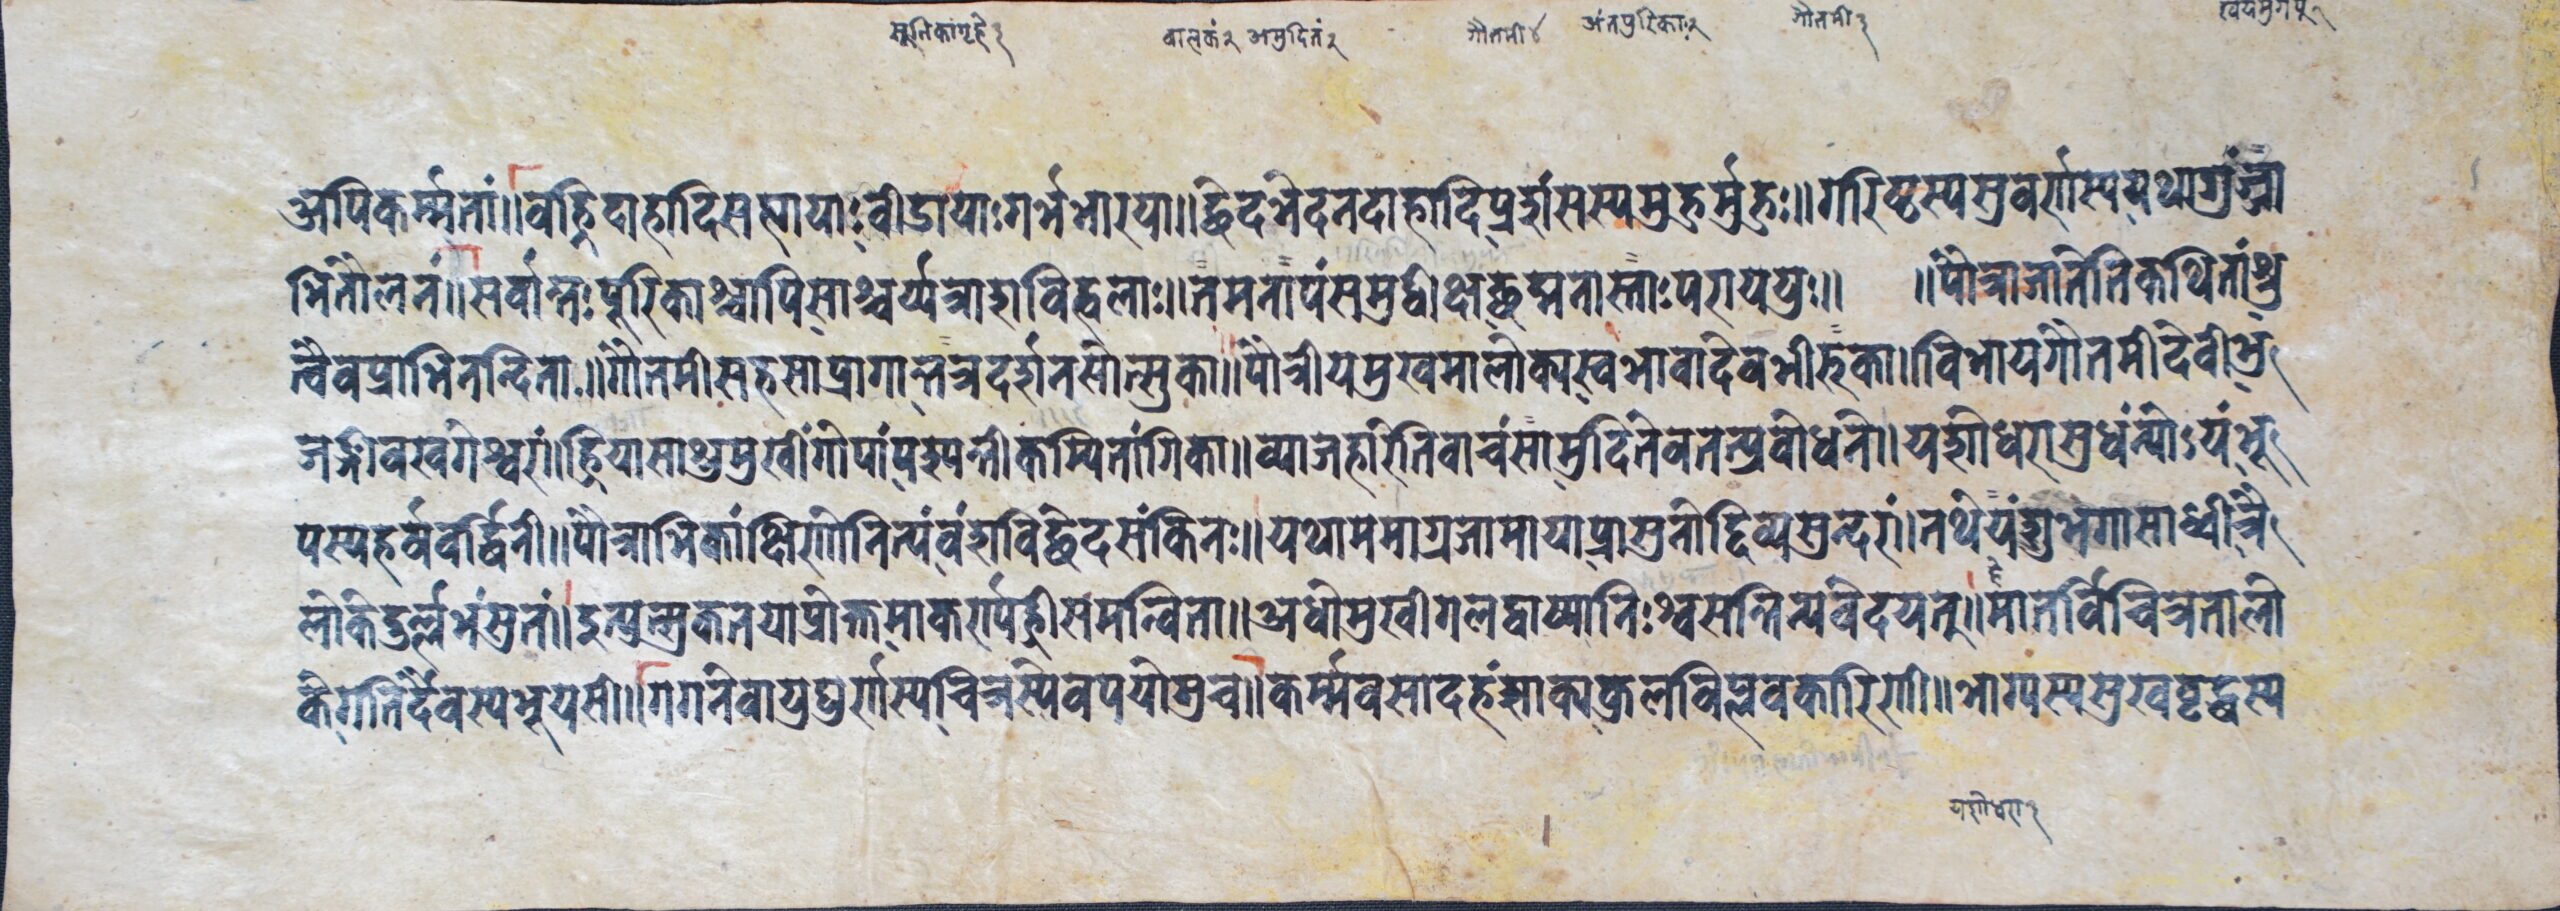 सूतिकागृहे १ बालकं २ अमुदितं २ गौतमी ४ अंतपुरिकाः २ गौतमी ३
अपिकर्म्मतां॥वह्निदाहादिसह्याया॰वीडायाःगर्भभारया॥द्विदभेदनदाहादिप्रर्शंसस्यमुहुर्मुहुः॥गरिष्टस्यसुवर्णस्ययथागुंजा
भितौलनं॥सर्वान्तःपूरिकाश्चापिसाश्चर्य्यत्राशविह्वलाः॥तमतापंसमुद्वीक्षछद्मनास्ताःपराययुः॥ ॥पौत्राजातेतिकथितांश्रु
त्वैवप्राभिनन्दिता॰॥गौतमीसहसाप्रागात्तत्रदर्शनसोत्सुका॥पौत्रीयमुखमालोक्यस्वभावादेवभीरुका॥विभायगौतमीदेवीभु
जङ्गीवखगेश्वरां॥ह्रियासाश्रुमुखींगोपांपश्यन्तीकम्पितांगिका॥व्याजहारेतिवाचंसामुदितेवतत्प्रबोधने॥यशोधरासुधंन्योऽयंभू
पस्यहर्षवर्द्धिनी॥पौत्राभिकांक्षिणोनित्यंवंशविछेदसंकिनः॥यथाममाग्रजामायाप्रासुतोद्दिव्यसुन्दरां॥तथेयंशुभगासाध्वीत्रै
लोकेदुर्ल्लभंसुतं॥इत्युत्सुकतयाप्रोक्तमाकर्णर्पह्रीसमन्विता॥अधोमुखीगलद्वाष्पानिःश्वसन्तिन्यवेदयत्॥मातर्विचित्रतालो
केगतिर्दैवस्यभूयसी॥गगनेवायुघूर्णस्यचित्रस्येवपयोमुच॥कर्म्मवसादहंसाक्यकुलविप्लवकारिणी॥भाग्यस्यसुखवृद्धस्य
यशोधरा १